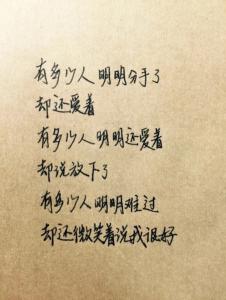 有多少人明明分手了
却还爱着
有多少人明明还爱着
却说放下了
有多少人明明难过
却还微笑着说我很好